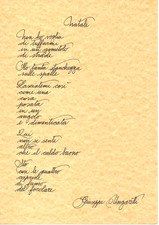 Natale
Non ho voglia
di tuffarmi
in un gomitolo
di strade
Ho tanta stanchezza
sulle spalle
Lasciatemi così
come una
cosa
posata
in un
angolo
e dimenticata
Qui
non si sente
altro
che il caldo buono
Sto
con le quattro
capriole
di fumo
del focolare
Giuseppe Ungaretti